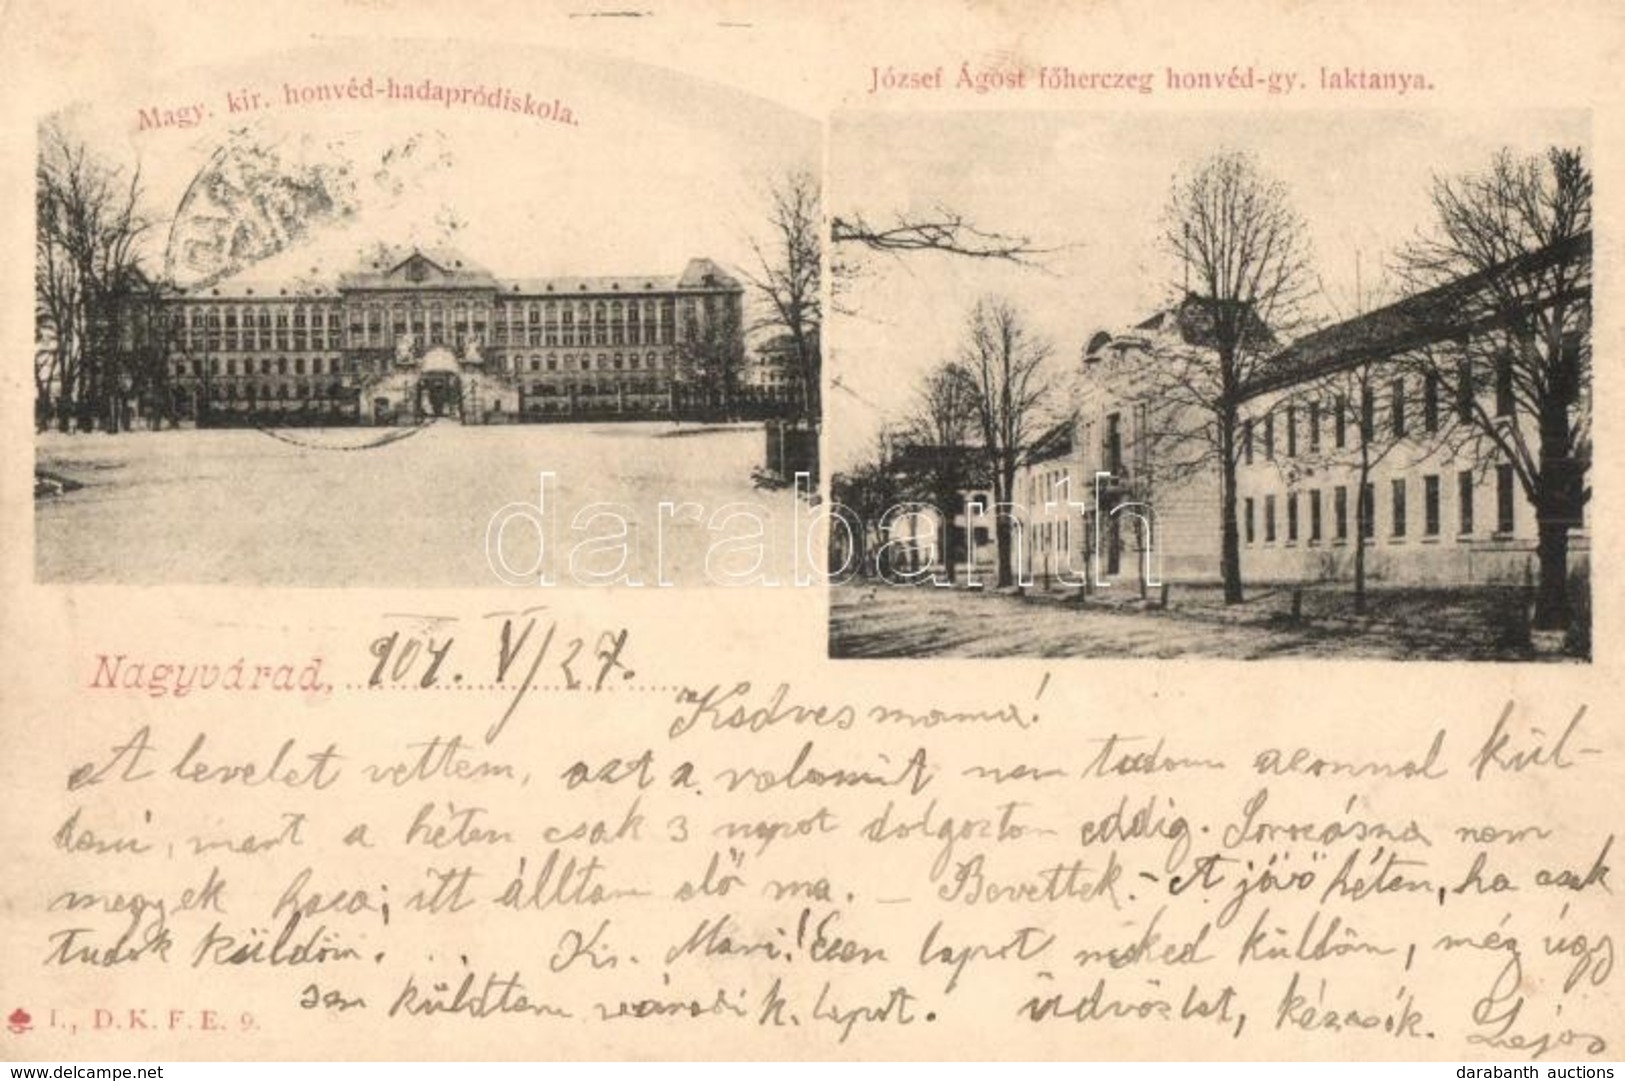 Magy. kir. honvéd-hadapródiskola.
József Ágost főherczeg honvéd-gy. laktanya.
darabanth
Nagyvárad, 904. V/27.
Kedves mama!
A levelet vettem, azt a valamit nem tudom azonnal kül-
deni, mert a héten csak 3 napot dolgoztam eddig. Sorozásra nem
megyek haza; itt álltam elő ma. – Bevettek. – A jövő héten, ha csak
tudok küldöm. . . Kis Mari! Ezen lapot neked küldöm, még úgy
sem küldtem váradi k. lapot. Üdvözlet, kézcsók. Lajos
I., D. K. F. E. 9.
darabanth auctions